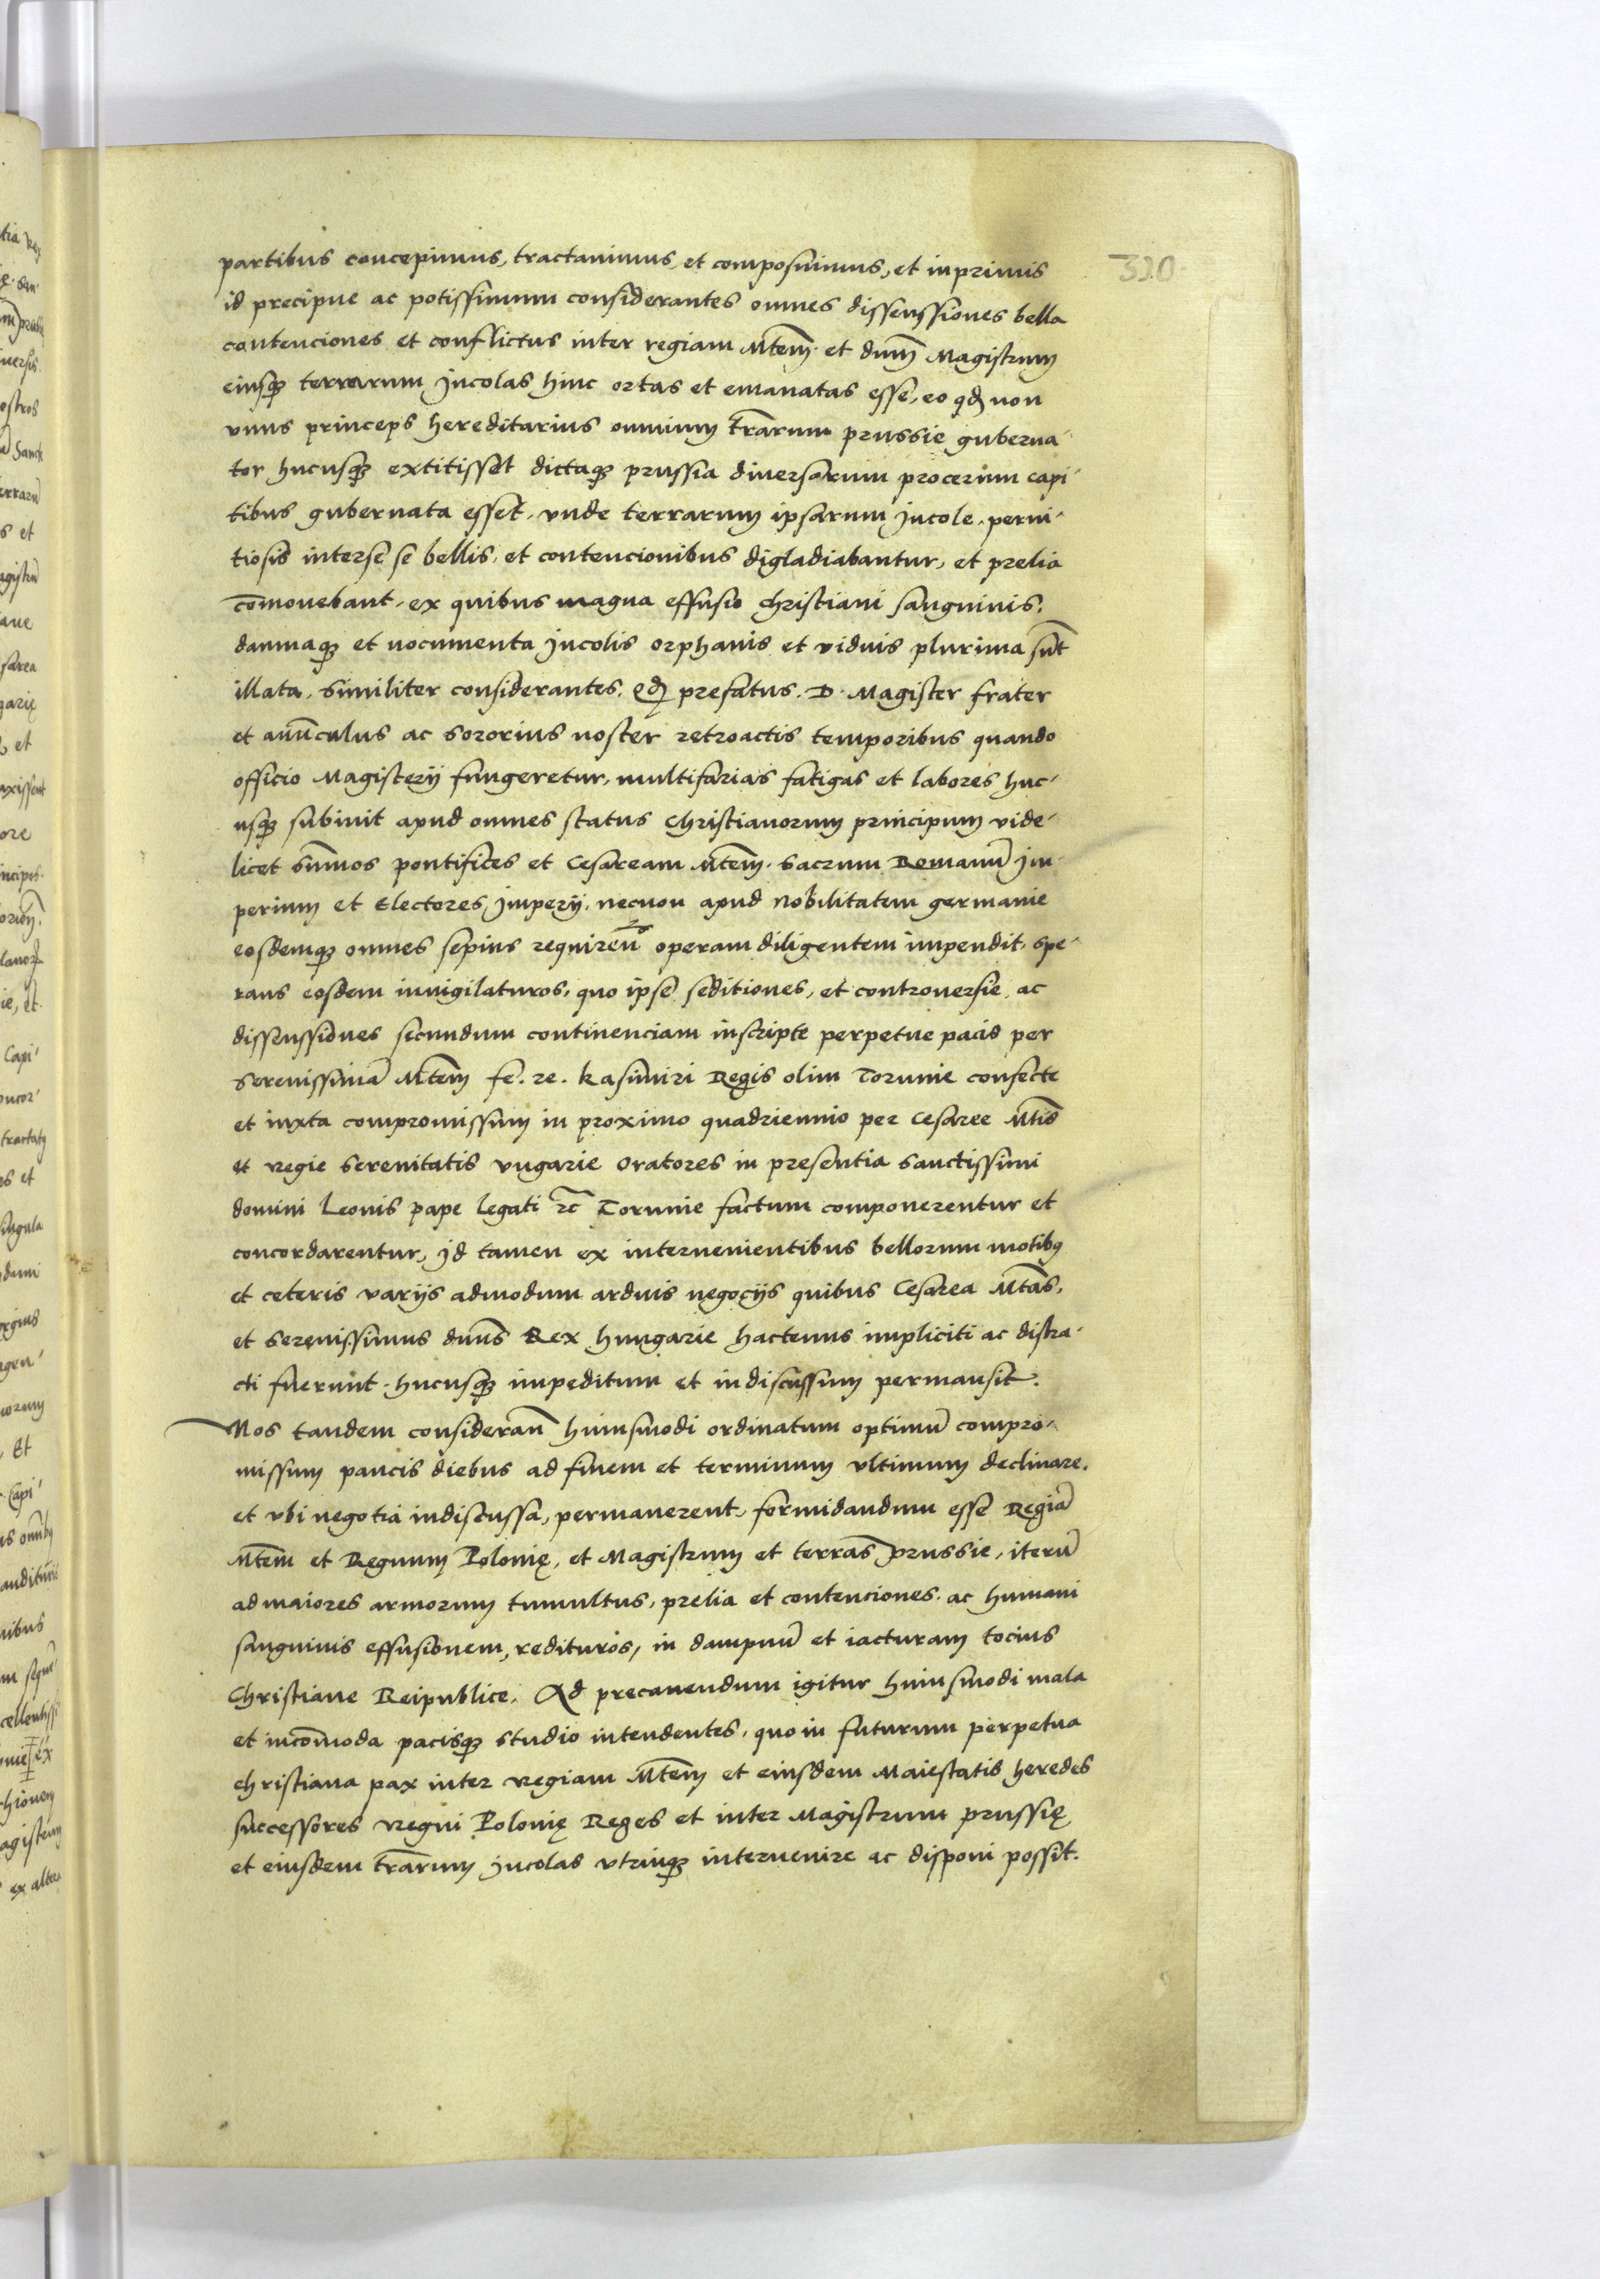 320
partibus concepimus, tractauimus et composuimus, et inprimis
id precipue ac potissimum considerantes omnes dissenssiones bella
contenciones et conflictus inter regiam Mtem et dnm̄ Magistrum
eiusq; terrarum Incolas hinc ortas et emanatas esse, eo qd non
vnus princeps hereditarius omnium trārum prussie guberna-
tor hucusq; extitisset dictaq; prussia diuersarum procerum capi-
tibus gubernata esset, vnde terrarum ipsarum Incole, perni-
tiosis interse se bellis, et contencionibus digladiabantur, et prelia
cōmouebant, ex quibus magna effusio christiani sanguinis,
damnaq; et nocumenta Incolis orphanis et viduis plurima sūt
illata, similiter considerantes, Qd prefatus D. Magister frater
et auūculus ac sororius noster retroactis temporibus quando
officio Magisterij fungeretur, multifarias fatigas et labores huc-
usq; subiuit apud omnes status Christianorum principum vide-
licet sūmos pontifices et Cesaream Mtem̄ sacrum Romanū Im-
perium et Electores Imperij, necnon apud Nobilitatem germanie
eosdemq; omnes sepius requireñ operam diligentem impendit, spe-
rans eosdem inuigilaturos, quo ipse seditiones, et controuersie, ac
dissenssiones secundum continenciam inscripte perpetue pacis per
Serenissimā Mtem̄ fe. re. Kasimiri Regis olim Torunie confecte
et iuxta compromissum in proximo quadriennio per Cesaree Mtis
et Regie Serenitatis Vngarie Oratores in presentia Sanctissimi
domini Leonis pape legati rc̄ Torunie factum componerentur et
concordarentur, Id tamen ex interuenientibus bellorum motibus
et ceteris varijs admodum arduis negocijs quibus Cesarea Mtas,
et Serenissimus dnus Rex Hungarie hactenus impliciti ac distra-
cti fuerunt, hucusq; impeditum et indiscussum permansit.
Nos tandem considerañ huiusmodi ordinatum optimū compro-
missum paucis diebus ad finem et terminum vltimum declinare,
et vbi negotia indiscussa, permanerent, formidandum esse Regiā
Mtem̄ et Regnum Polonię, et Magistrum et terras prussie, iterū
ad maiores armorum tumultus, prelia et contenciones, ac humani
sanguinis effusionem, redituros, in dampnū et iacturam tocius
Christiane Reipublice. Ad precauendum igitur huiusmodi mala
et incōmoda pacisq; studio intendentes, quo in futurum perpetua
christiana pax inter Regiam Mtem̄ et eiusdem Maiestatis heredes
successores Regni Polonię Reges et inter Magistrum prussię
et eiusdem trārum Incolas vtrinq; interuenire ac disponi possit.